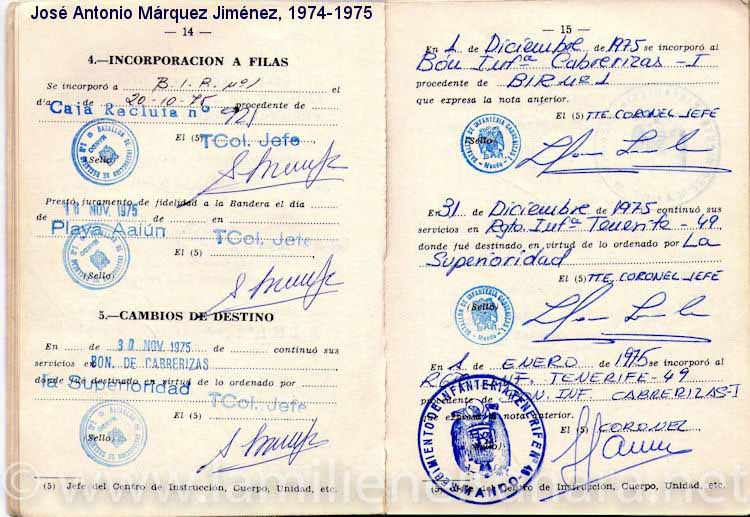 José Antonio Márquez Jiménez, 1974-1975
— 14 —
4.—INCORPORACION A FILAS
Se incorporó a B.I.R. nº1 el
día de 20-10-75 procedente de
Caja Recluta nº 921
El (5) TCol. Jefe
(Sello)
Prestó juramento de fidelidad a la Bandera el día
de 16 NOV. 1975 de en
Playa Aaiún
El (5) TCol. Jefe
(Sello)
5.—CAMBIOS DE DESTINO
En de 30 NOV. 1975 continuó sus
servicios en BON. DE CABRERIZAS
donde fué destinado en virtud de lo ordenado por
la Superioridad
El (5) TCol. Jefe
(Sello)
(5) Jefe del Centro de Instrucción, Cuerpo, Unidad, etc.
— 15 —
En 1 de Diciembre de 1975 se incorporó al
Bón Infª Cabrerizas -I
procedente de BIR nº 1
que expresa la nota anterior.
El (5) TTE. CORONEL JEFE
(Sello)
BATALLON DE INFANTERIA CABRERIZAS
- Mando -
En 31 de Diciembre de 1975 continuó sus
servicios en Rgto. Infª Tenerife - 49
donde fué destinado en virtud de lo ordenado por La
Superioridad
El (5) TTE. CORONEL JEFE
(Sello)
BATALLON DE INFANTERIA CABRERIZAS
- Mando -
En 1 de ENERO de 1975 se incorporó al
RGTO. INF. TENERIFE-49
procedente de BON. INF. CABRERIZAS-I
que expresa la nota anterior.
El (5) CORONEL
REGIMIENTO DE INFANTERIA TENERIFE Nº 49
MANDO
(5) Jefe del Centro de Instrucción, Cuerpo, Unidad, etc.